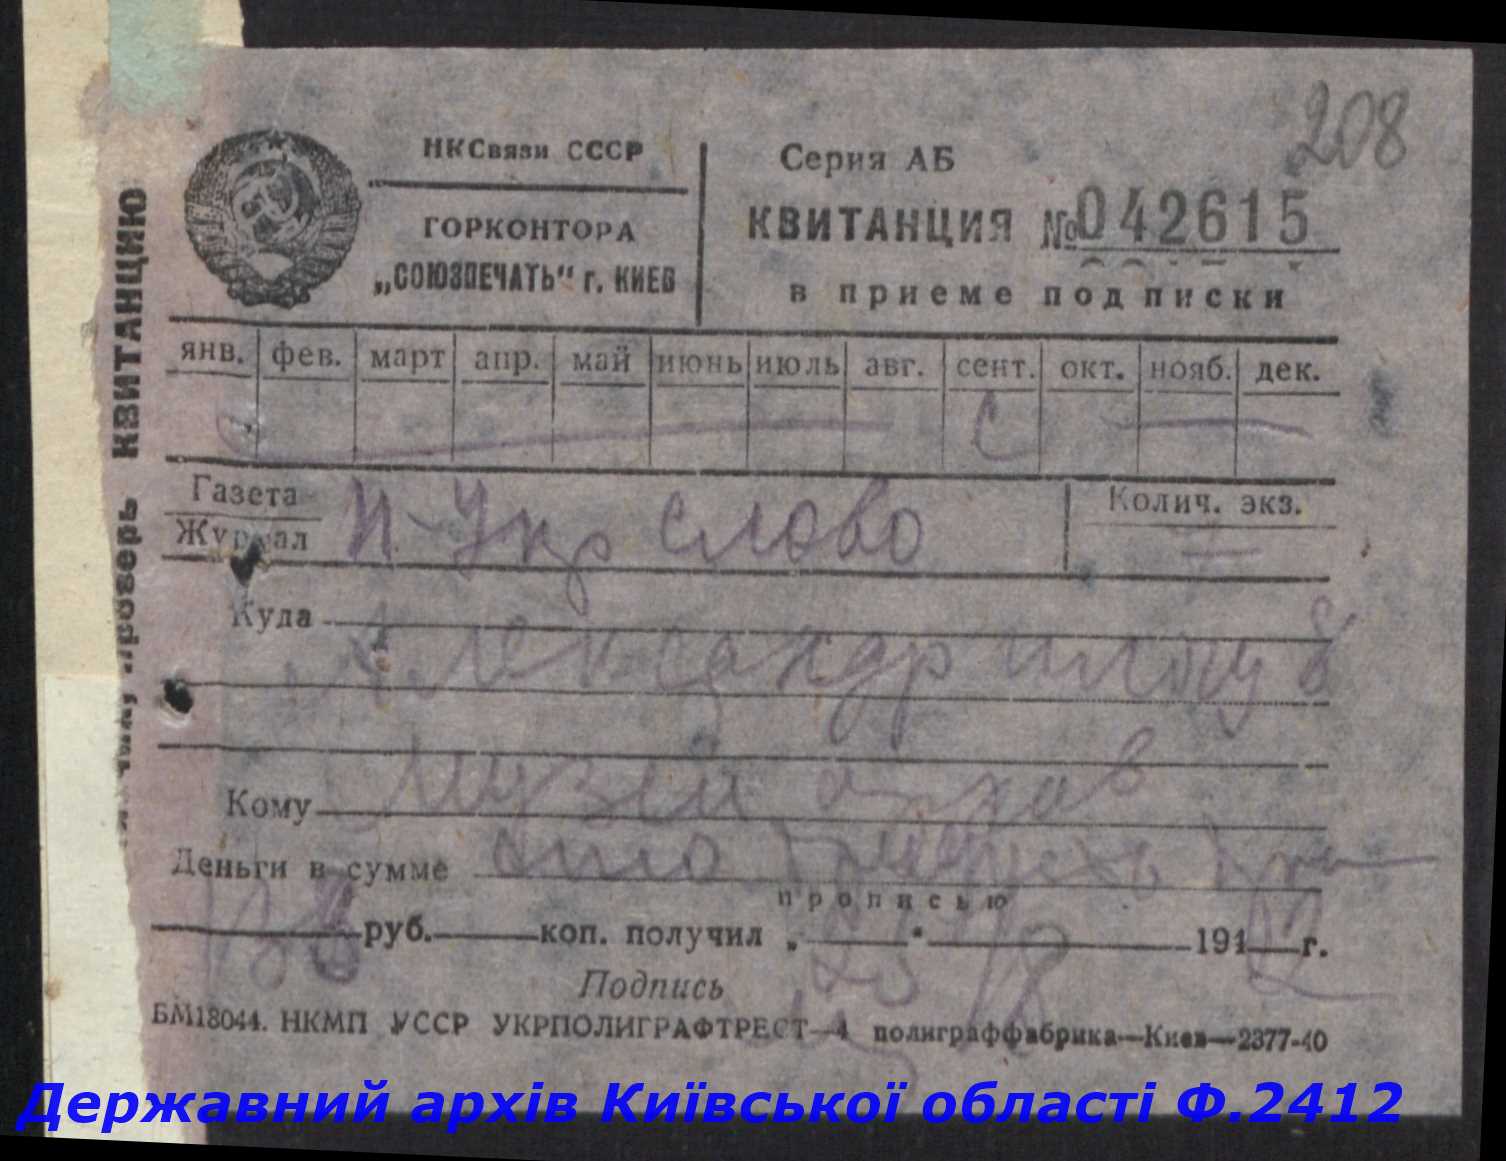 208
НКСвязи СССР
ГОРКОНТОРА
„СОЮЗПЕЧАТЬ“ г. КИЕВ
Серия АБ
КВИТАНЦИЯ №042615
в приеме подписки
КВИТАНЦИЮ
янв. фев. март апр. май июнь июль авг. сент. окт. нояб. дек.
Газета
Журнал
Укр слово
Колич. экз.
Куда
Александр 8
Кому
Музей
Деньги в сумме
сто
прописью
руб. коп. получил „ “ 191 г.
Подпись
БМ18044. НКМП УССР УКРПОЛИГРАФТРЕСТ—4 полиграффабрика—Киев—2377-40
Державний архів Київської області Ф.2412